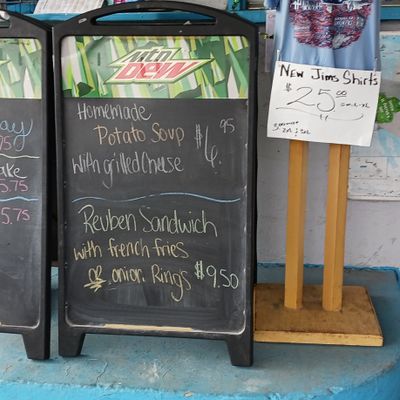 ay
75
ake
5.75
5.75
Mtn
DEW
Homemade
Potato Soup
with grilled Cheese
$4.95
Reuben Sandwich
with french fries
or onion Rings $9.50
New Jims Shirts
$25.00